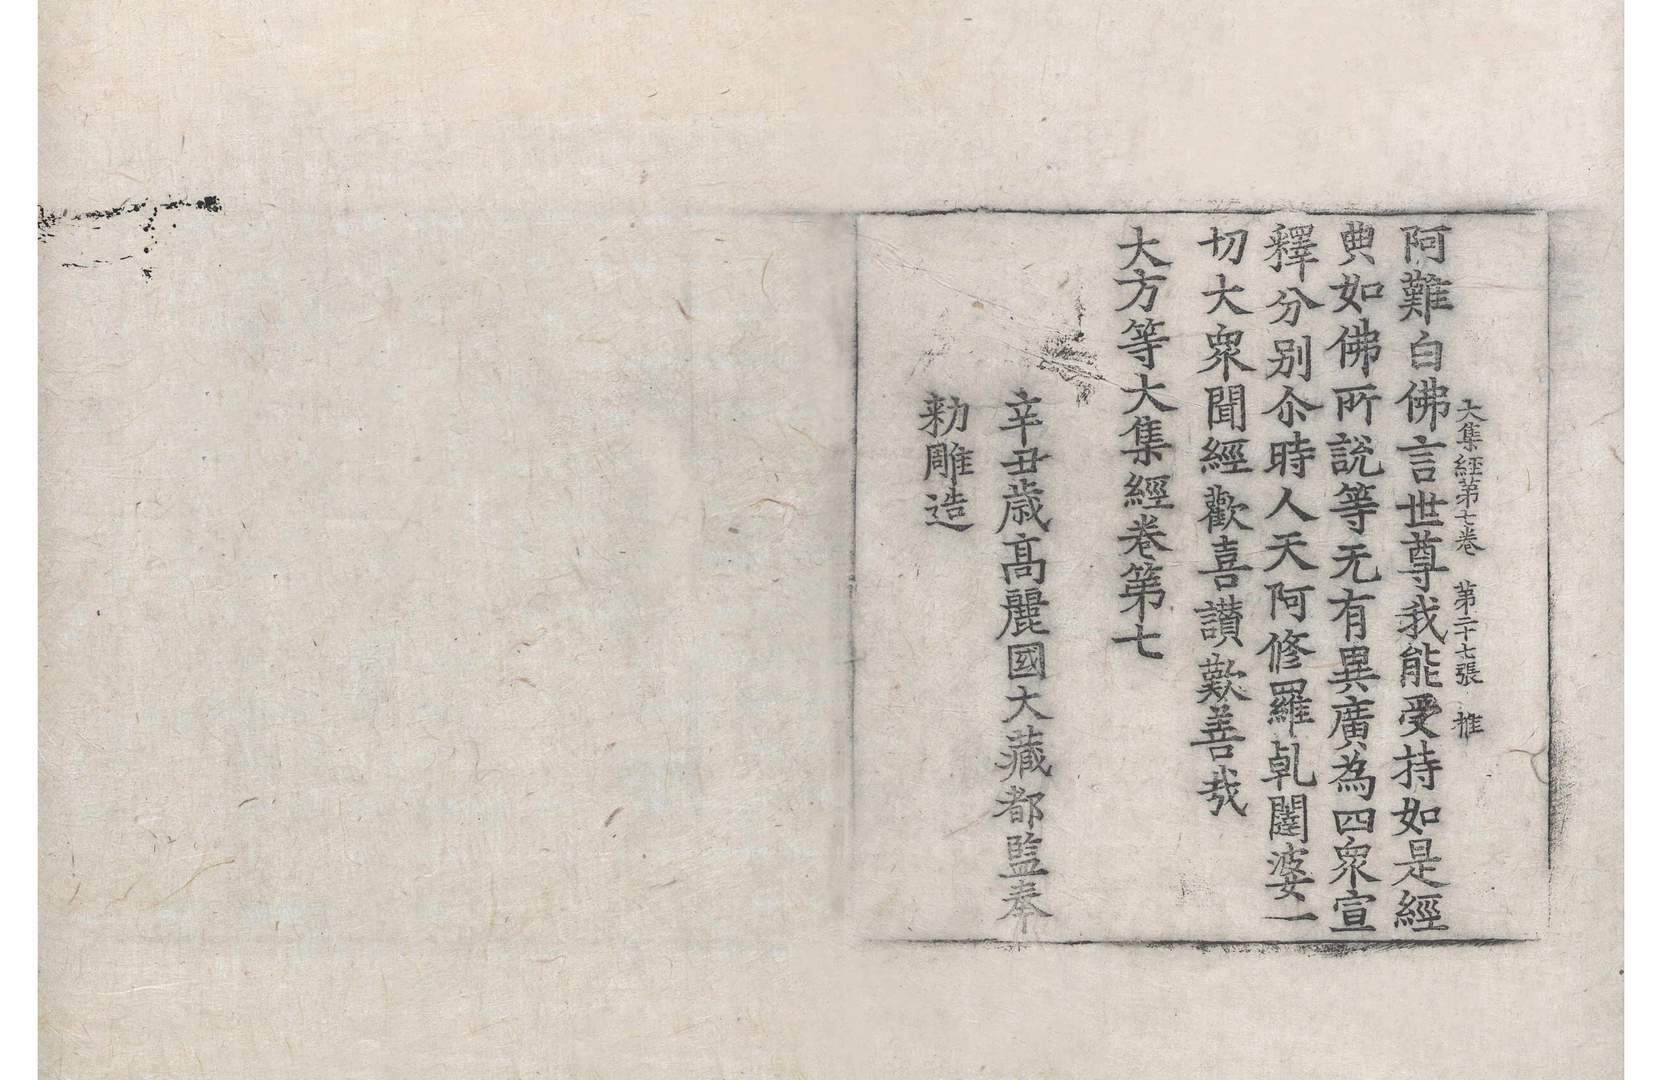 大集經第七卷 第二十七張 推
阿難白佛言世尊我能受持如是經
典如佛所說等无有異廣為四衆宣
釋分別尒時人天阿修羅乹闥婆一
切大衆聞經歡喜讃歎善哉
大方等大集經卷第七
辛丑歳高麗國大藏都監奉
勑雕造